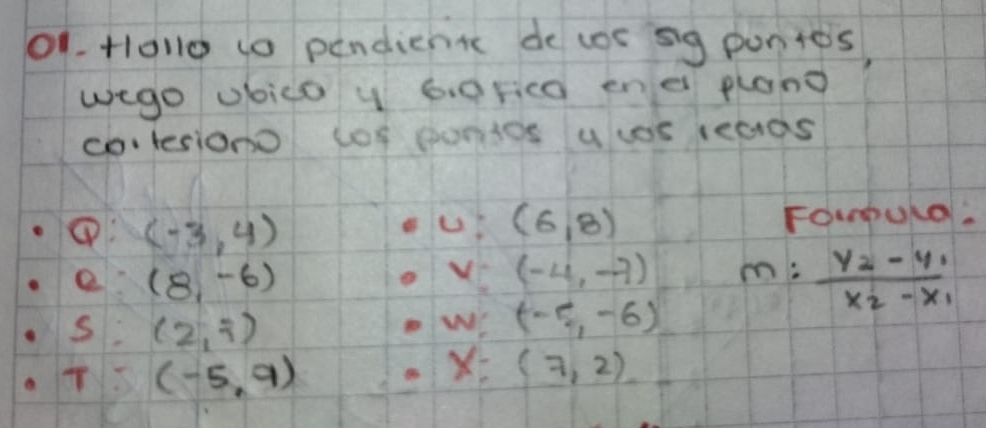 01. Hallo la pendiente de los sig puntos,
luego ubico y Grafico en el plano
cartesiano los puntos y las rectas
• Q: (-3,4) • U: (6,8) Formula:
• R: (8,-6) • V: (-4,-7) m: y2 - y1 / x2 - x1
• S: (2,7) • W: (-5,-6)
• T: (-5,9) • X: (7,2)